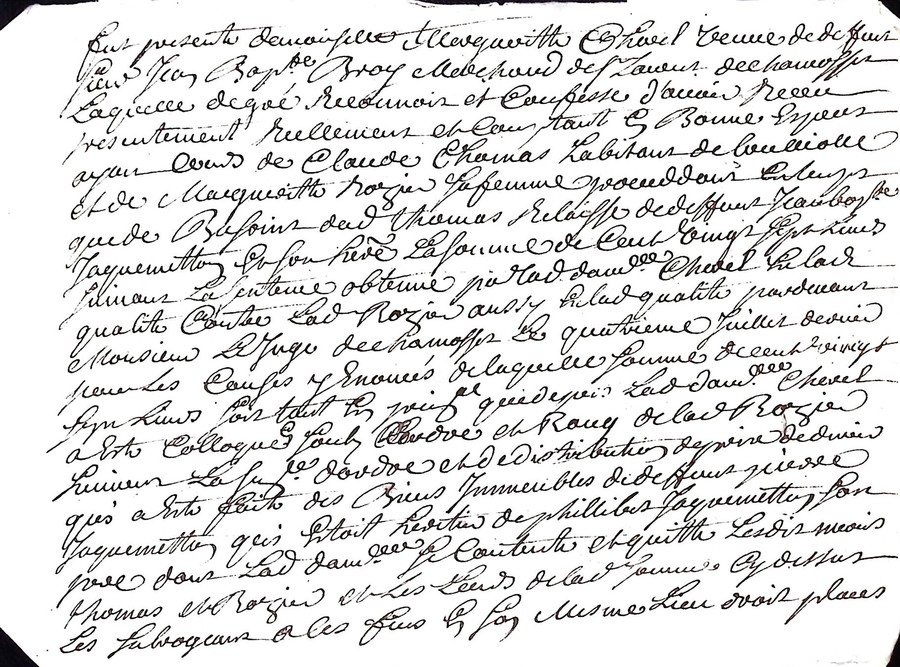 fut presente demoiselle Margueritte Chevel veuve de deffunt
Jean Bap.te Broy Marchand de St Laurent de chamosset
Laquelle de gré Reconnoit et Confesse d'avoir Receu
presentement Reellement et Comptant En Bonne Especes
ayan Cours de Claude Thomas habitant de
et de Marguerith Rozier Sa femme procedant
que de dud Thomas Relaisse de deffunt Jean bap.te
Jaquemetton Et Son La Somme de Cent vingt Sept Livres
Suivant La Sentence obtenue par lad dam.lle Chevel En lad
qualité Contre Lad Rozier aussy En lad qualité pardevant
Monsieur Le Juge de chamosset Le quatrieme Juillet dernier
pour Les Causes y Enoncés de laquelle Somme de cent vingt
Sept Livres Soit tant En que depuis Lad dam.lle Chevel
a Esté Colloqué Sous Lordre et Rang de lad Rozier
Suivant La dordre et de distribution de prix de
qui a Esté faite des Biens Immeubles de deffunt pierre
Jaquemetton qui Estoit heritier de phillibert Jaquemetton Son
pere dont Lad dam.lle Se Contente et quitte Lesdits mariés
Thomas et Rozier et Les Leurs de lad Somme Cy dessus
Les Subrogeant a Ces fins En Son Mesme Lieu droit places